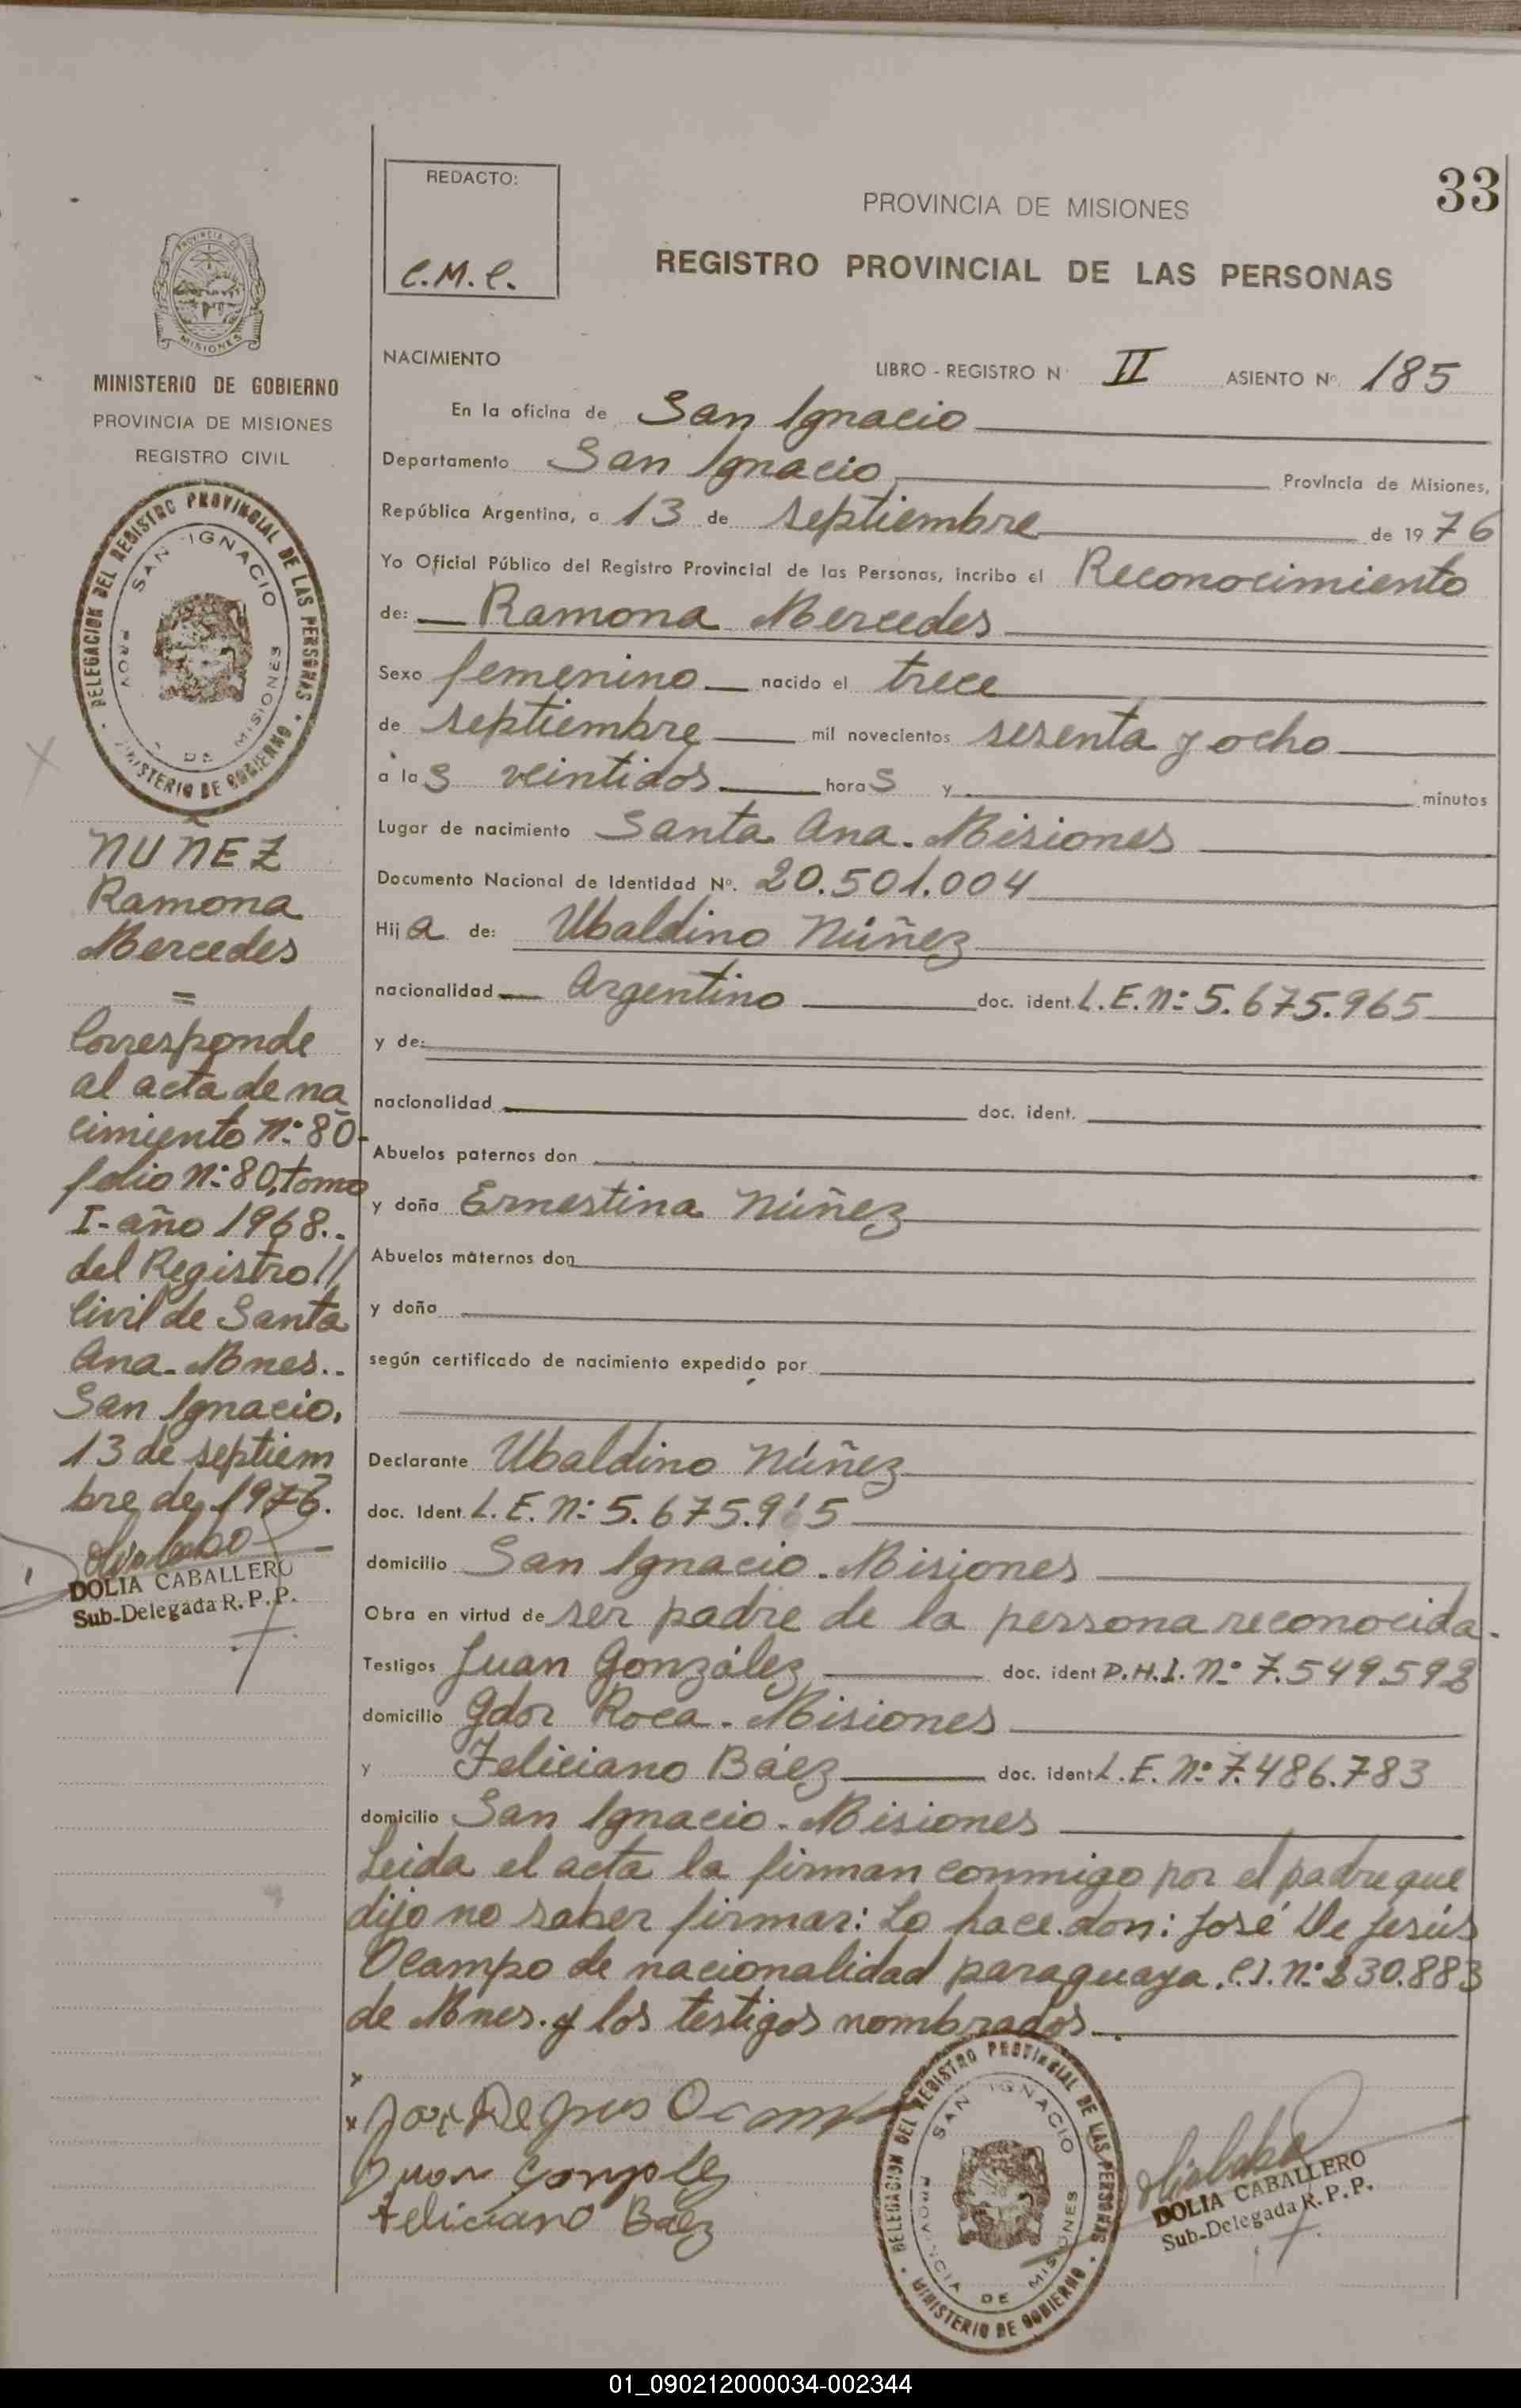 33
REDACTO:
C.M.C.
PROVINCIA DE MISIONES
REGISTRO PROVINCIAL DE LAS PERSONAS
PROVINCIA DE
MISIONES
MINISTERIO DE GOBIERNO
PROVINCIA DE MISIONES
REGISTRO CIVIL
DELEGACION DEL REGISTRO PROVINCIAL DE LAS PERSONAS
SAN IGNACIO
PROV. DE MISIONES
MINISTERIO DE GOBIERNO
NUÑEZ
Ramona
Mercedes
=
Corresponde
al acta de na
cimiento Nº: 80-
folio Nº: 80, tomo
I- año 1968..
del Registro//
Civil de Santa
Ana. Mnes..
San Ignacio,
13 de septiem
bre de 1976.
DOLIA CABALLERO
Sub-Delegada R.P.P.
NACIMIENTO LIBRO - REGISTRO Nº II ASIENTO Nº 185
En la oficina de San Ignacio
Departamento San Ignacio Provincia de Misiones,
República Argentina, a 13 de septiembre de 1976
Yo Oficial Público del Registro Provincial de las Personas, incribo el Reconocimiento
de: Ramona Mercedes
Sexo femenino nacido el trece
de septiembre mil novecientos sesenta y ocho
a las veintidos horas y minutos
Lugar de nacimiento Santa Ana. Misiones
Documento Nacional de Identidad Nº. 20.501.004
Hija de: Ubaldino Núñez
nacionalidad Argentino doc. ident. L.E. Nº: 5.675.965
y de:
nacionalidad doc. ident.
Abuelos paternos don
y doña Ernestina Núñez
Abuelos maternos don
y doña
según certificado de nacimiento expedido por
Declarante Ubaldino Núñez
doc. Ident. L.E. Nº: 5.675.965
domicilio San Ignacio. Misiones
Obra en virtud de ser padre de la persona reconocida.
Testigos Juan González doc. ident D.N.I. Nº 7.549.592
domicilio Gdor Roca. Misiones
y Feliciano Báez doc. ident L.E. Nº 7.486.783
domicilio San Ignacio. Misiones
Leida el acta la firman conmigo por el padre que
dijo no saber firmar: Lo hace don: José De Jesús
Ocampo de nacionalidad paraguaya. C.I. Nº 230.883
de Mnes. y los testigos nombrados
José De Jesus Ocampo
Juan Gonzalez
Feliciano Báez
DELEGACION DEL REGISTRO PROVINCIAL DE LAS PERSONAS
SAN IGNACIO
PROVINCIA DE MISIONES
MINISTERIO DE GOBIERNO
DOLIA CABALLERO
Sub-Delegada R.P.P.
01_090212000034-002344